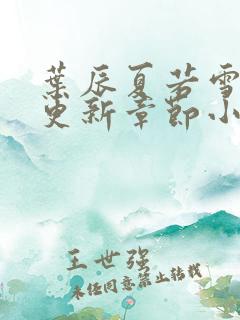 葉辰夏若雪
更新章節小
王世强
未经同意禁止转载